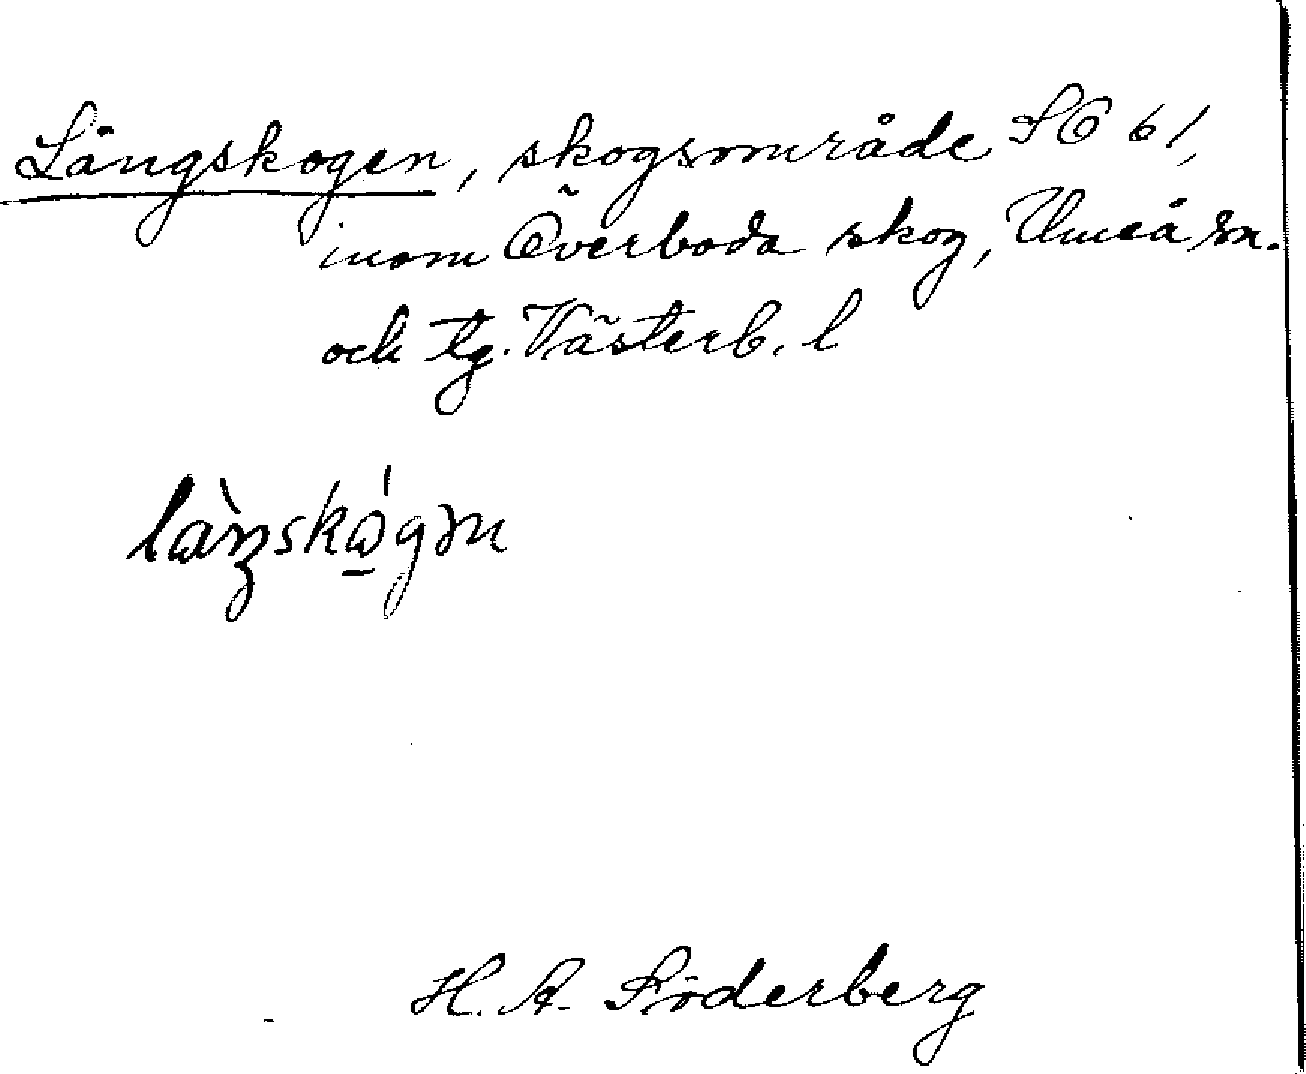 Långskogen, skogsområde SO 61,
inom Överboda skog, Umeå sn.
och tg. Västerb. l
làŋskógən
H. A. Söderberg